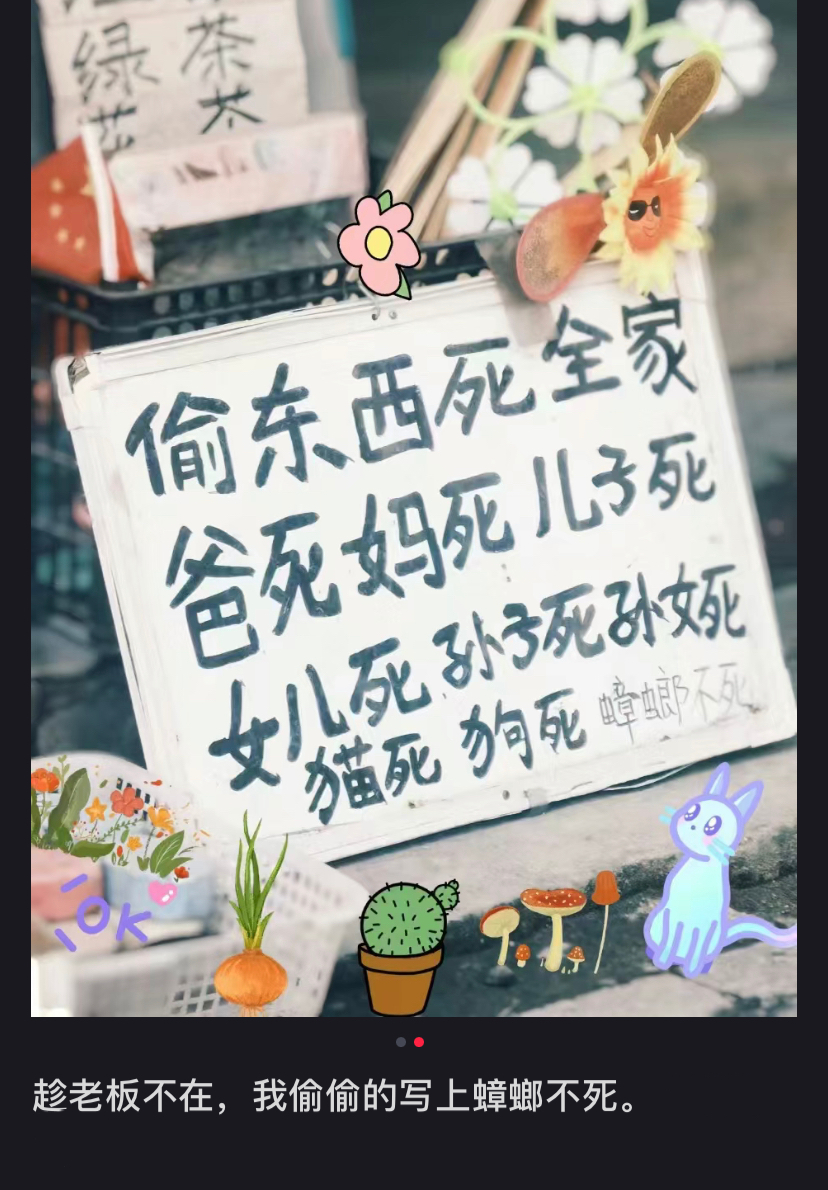 绿 茶
花 茶
偷东西死全家
爸死妈死儿子死
女儿死孙子死孙女死
猫死狗死蟑螂不死
OK
趁老板不在，我偷偷的写上蟑螂不死。